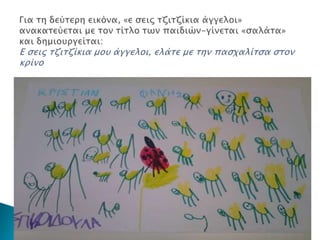 Για τη δεύτερη εικόνα, «ε σεις τζιτζίκια άγγελοι»
ανακατεύεται με τον τίτλο των παιδιών-γίνεται «σαλάτα»
και δημιουργείται:
Ε σεις τζιτζίκια μου άγγελοι, ελάτε με την πασχαλίτσα στον
κρίνο
ΚΡΙΣΤΙΑΝ
ΦΑΝΗΣ